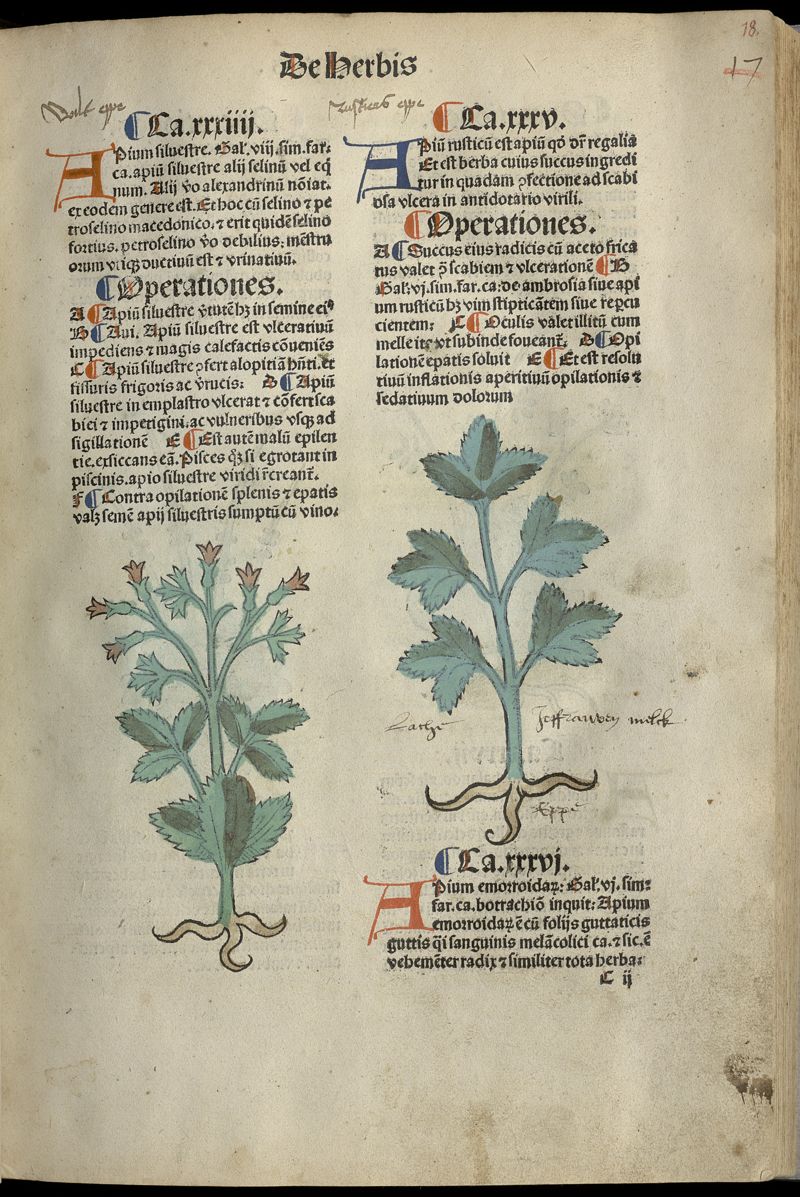 18.
17
De Herbis
eppe
Ca.xxxiiij.
Apium siluestre. Gal'. viij. sim. far.
ca. apiū siluestre alij selinū vel eq̄
num. Alij v̄o alexandrinū nōiāt.
ex eodem genere est. Et hoc cū selino ⁊ pe
troselino macedonico. ⁊ erit quidē selino
fortius. petroselino v̄o debilius: mēstru
orum vtiqꝫ ductiuū est ⁊ vrinatiuū.
Operationes.
A Apiū siluestre v̄tutē hꝫ in semine eiꝰ
B Aui. Apiū siluestre est vlceratiuū
impediens ⁊ magis calefactis cōueniēs
C Apiū siluestre ꝓfert alopitiā hn̄ti. et
fissuris frigoris ac v̄rucis: D Apiū
siluestre in emplastro vlcerat ⁊ cōfert sca
biei ⁊ impetigini. ac vulneribus vsqꝫ ad
sigillationē E Est autē malū epilen
tie. exsiccans eā. Pisces qꝫ si egrotant in
piscinis. apio siluestre viridi r̄creant̄.
F Contra opilationē splenis ⁊ epatis
valꝫ semē apij siluestris sumptū cū vino.
rusticus eppe
Ca.xxxv.
Apiū rusticū est apiū qd̄ dr̄ regalia
Et est herba cuius succus ingredi
tur in quadam ꝓfectione ad scabi
osa vlcera in antidotario virili.
Operationes.
A Succus eius radicis cū aceto frica
tus valet ꝓ scabiem ⁊ vlcerationē B
Gal'. vj. sim. far. ca: de ambrosia siue api
um rusticū hꝫ vim stipticātem siue repercu
cientem: C Oculis valet illitū cum
melle ita vt subinde foueant̄: D Opi
lationē epatis soluit E Et est resolu
tiuū inflationis aperitiuū opilationis ⁊
sedatiuum dolorum
Jeffrauwen melck
Eppe
Ca.xxxvj.
Apium emorroidaꝝ: Gal'. vj. sim:
far. ca. botrachiō inquit: Apium
emorroidaꝝ ē cū folijs guttaticis
guttis q̄i sanguinis melācolici ca. ⁊ sic. ē
vehemēter radix ⁊ similiter tota herba:
C ij